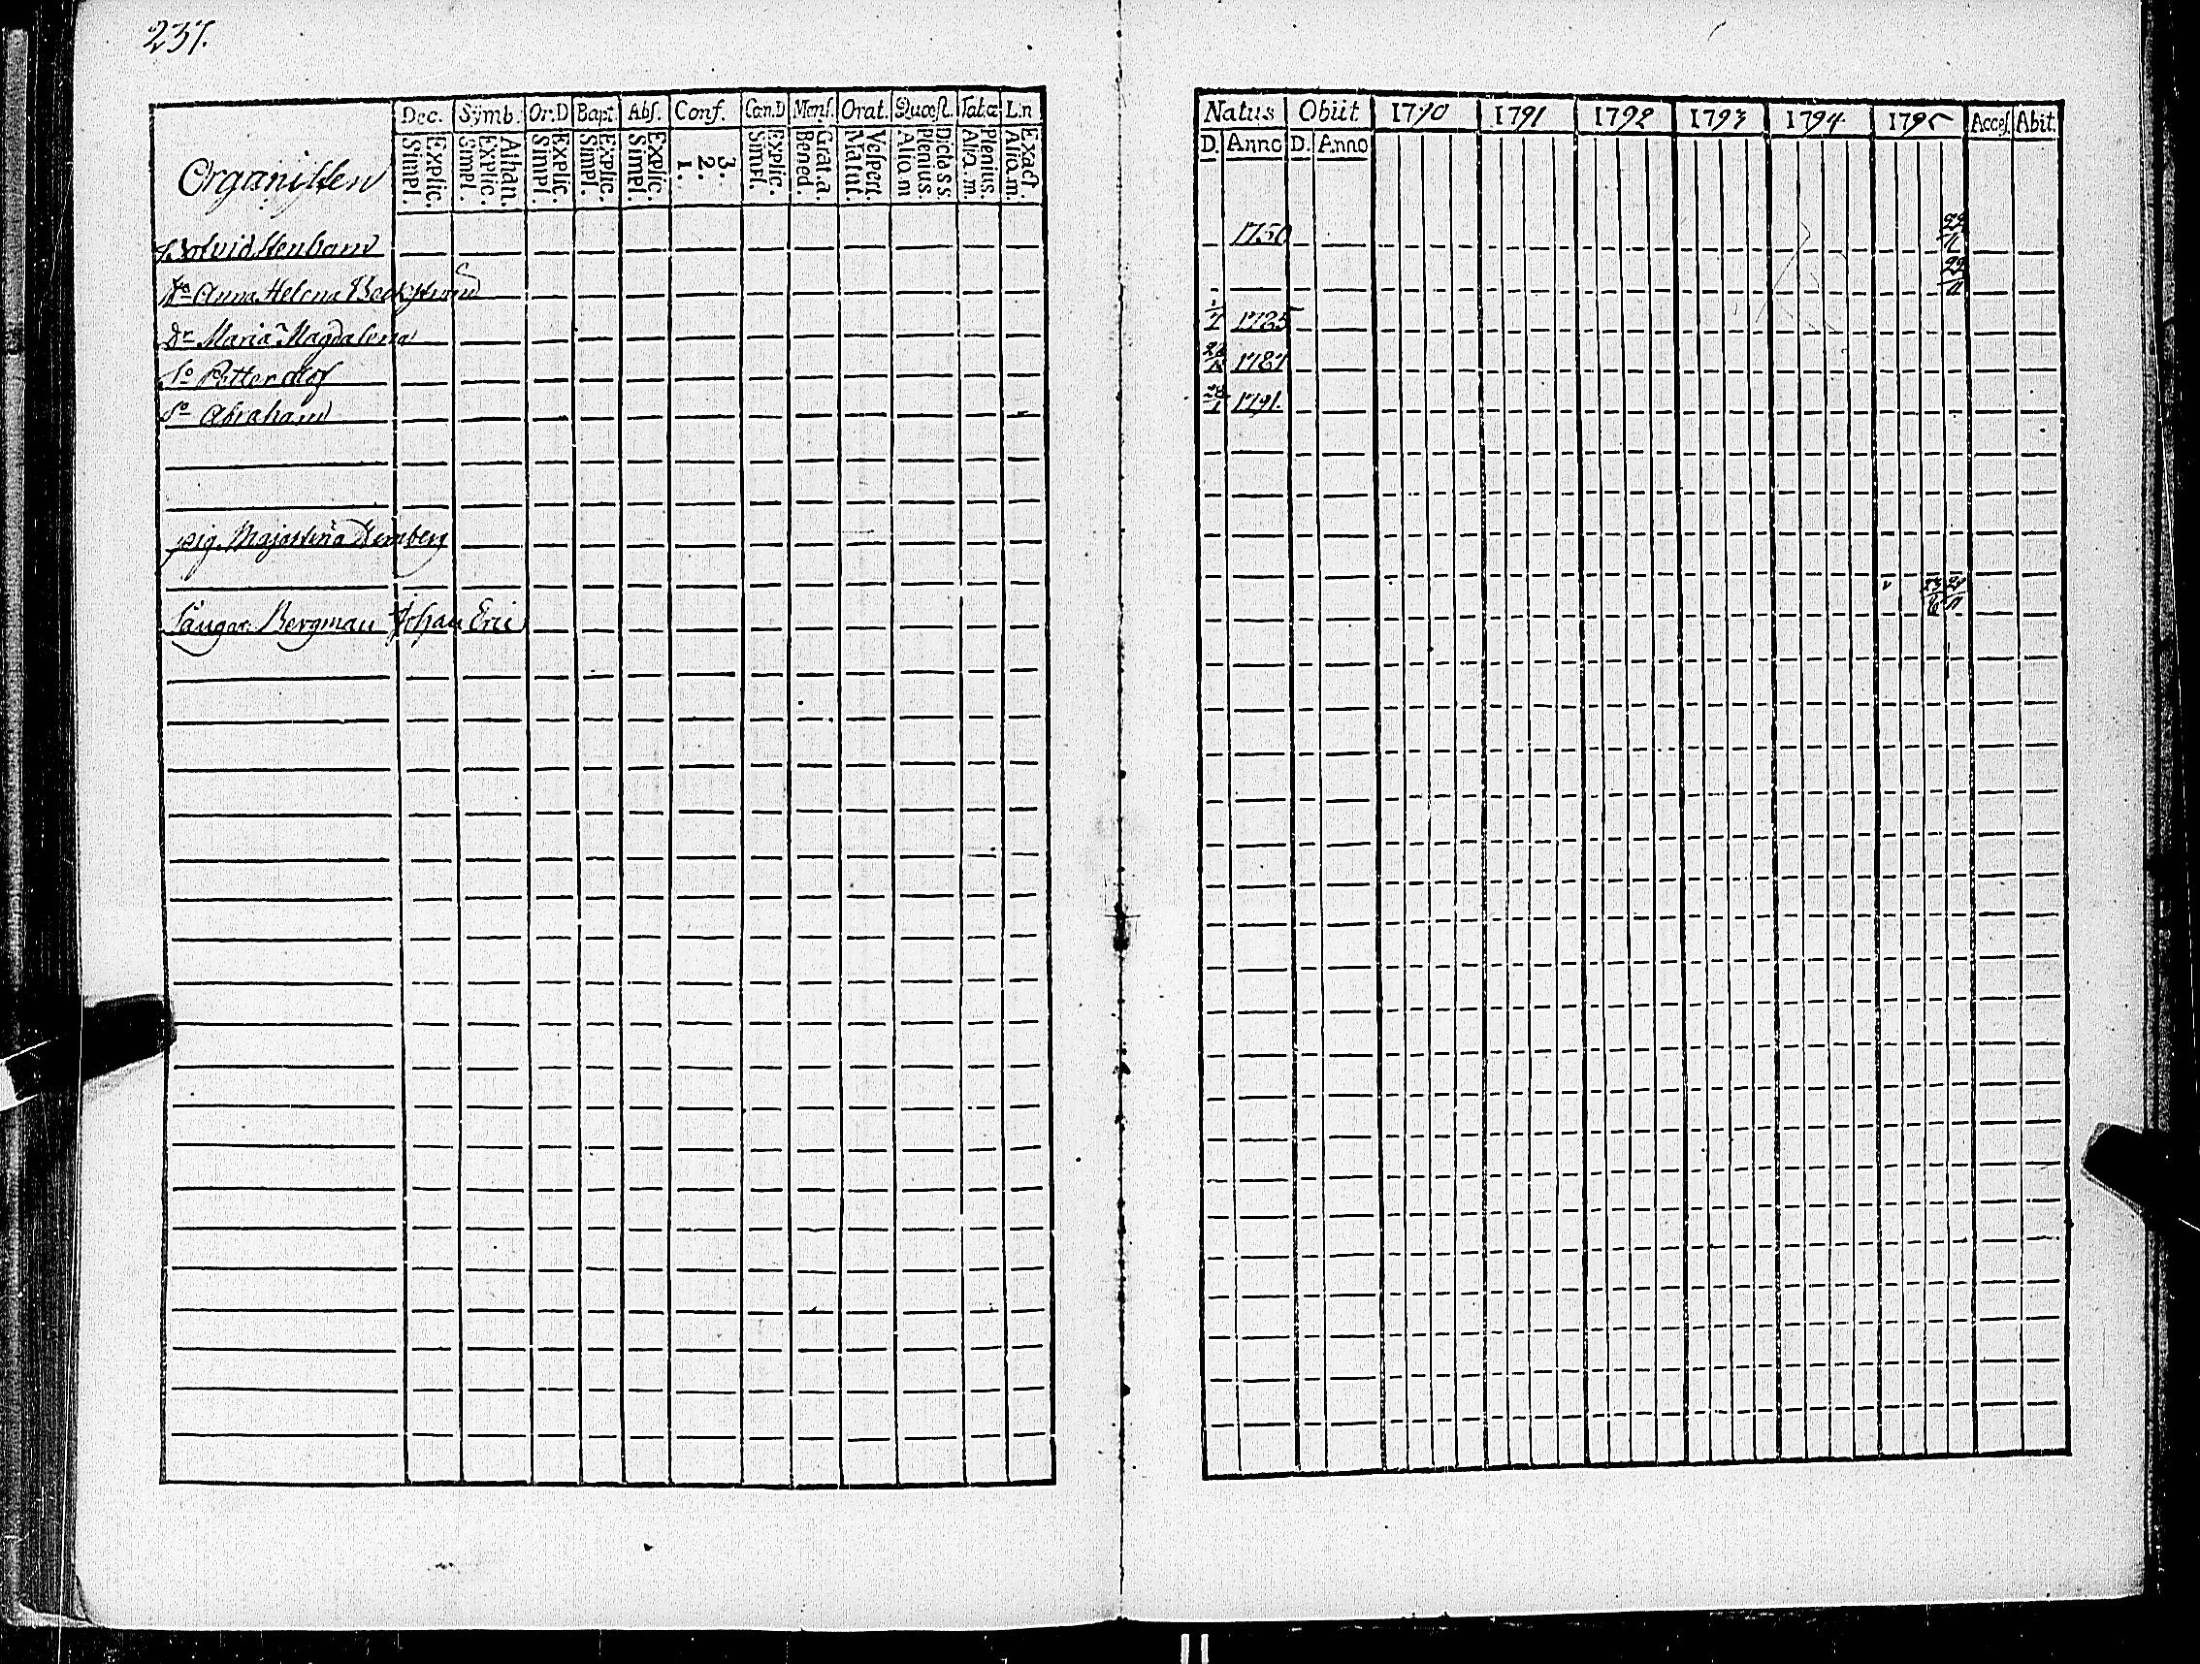 237.
Dec. Symb. Or.D Bapt. Abs. Conf. Can.D Mens. Orat. Quæst. Tab.œ L.n
Organisten Simpl. Explic. Simpl. Explic. Athan. Simpl. Explic. Simpl. Explic. Simpl. Explic. 1. 2. 3. Simpl. Explic. Bened. Grat.a. Matut. Vespert. Aliq.m Plenius. Dicta s.s. Aliq.m. Plenius. Aliq.m. Exact.
Botvid Stenbom
Anna Helena Beckström
Dr Maria Magdalena
So Petter Olof
So Abraham
pig. Majastina
Sångar. Bergman Johan Eric
Natus Obiit 1790 1791 1792 1793 1794 1795 Acces. Abit.
D. Anno D. Anno
1750 22/11
22/11
1/7 1785
1787
1791.